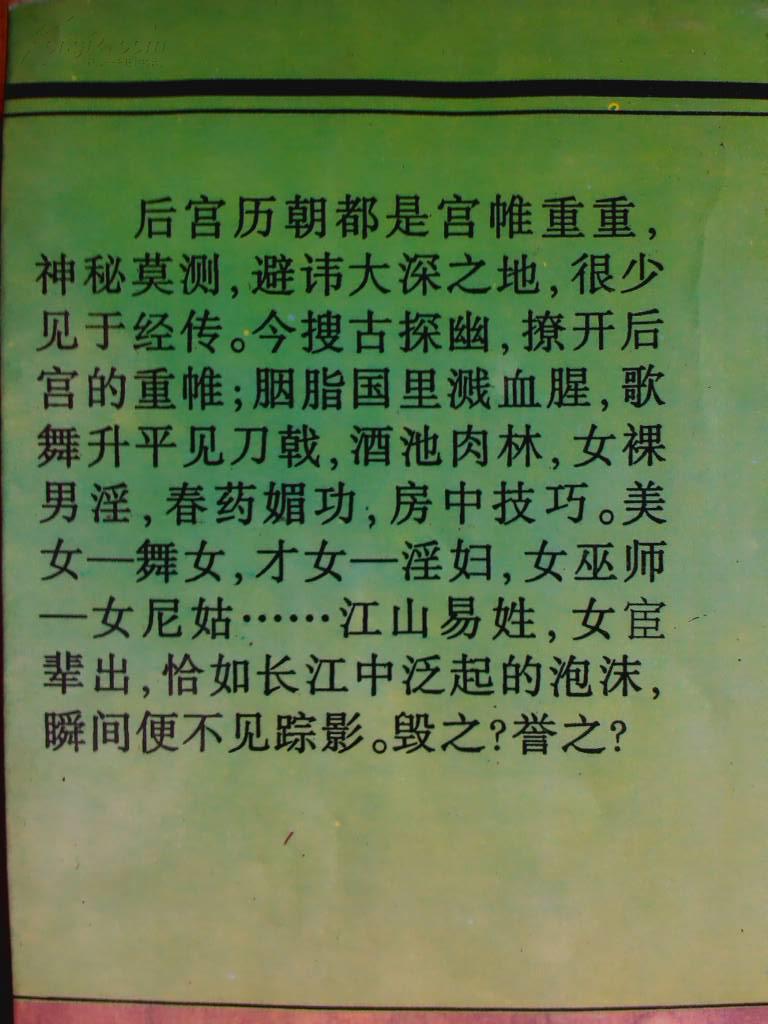 后宫历朝都是宫帷重重，
神秘莫测，避讳大深之地，很少
见于经传。今搜古探幽，撩开后
宫的重帷；胭脂国里溅血腥，歌
舞升平见刀戟，酒池肉林，女裸
男淫，春药媚功，房中技巧。美
女—舞女，才女—淫妇，女巫师
—女尼姑……江山易姓，女宦
辈出，恰如长江中泛起的泡沫，
瞬间便不见踪影。毁之？誉之？